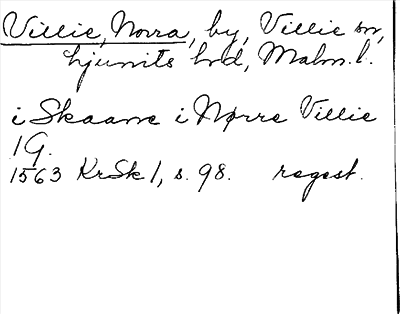 Villie, Norra, by, Villie sn,
Ljunits hd, Malm. l.
i Skaane i Nørre Villie
1 G.
1563 KrSk 1, s. 98. regest.